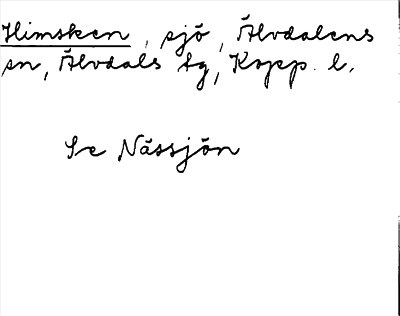 Himsken, sjö, Älvdalens
sn, Älvdals tg, Kopp. l.
Se Nässjön